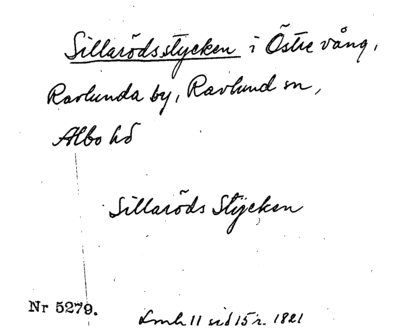 Sillarödsstycken i Östre vång,
Ravlunda by, Ravlund sn,
Albo hd
Sillaröds Stycken
Nr 5279.
Lmh 11 sid 15 r. 1821